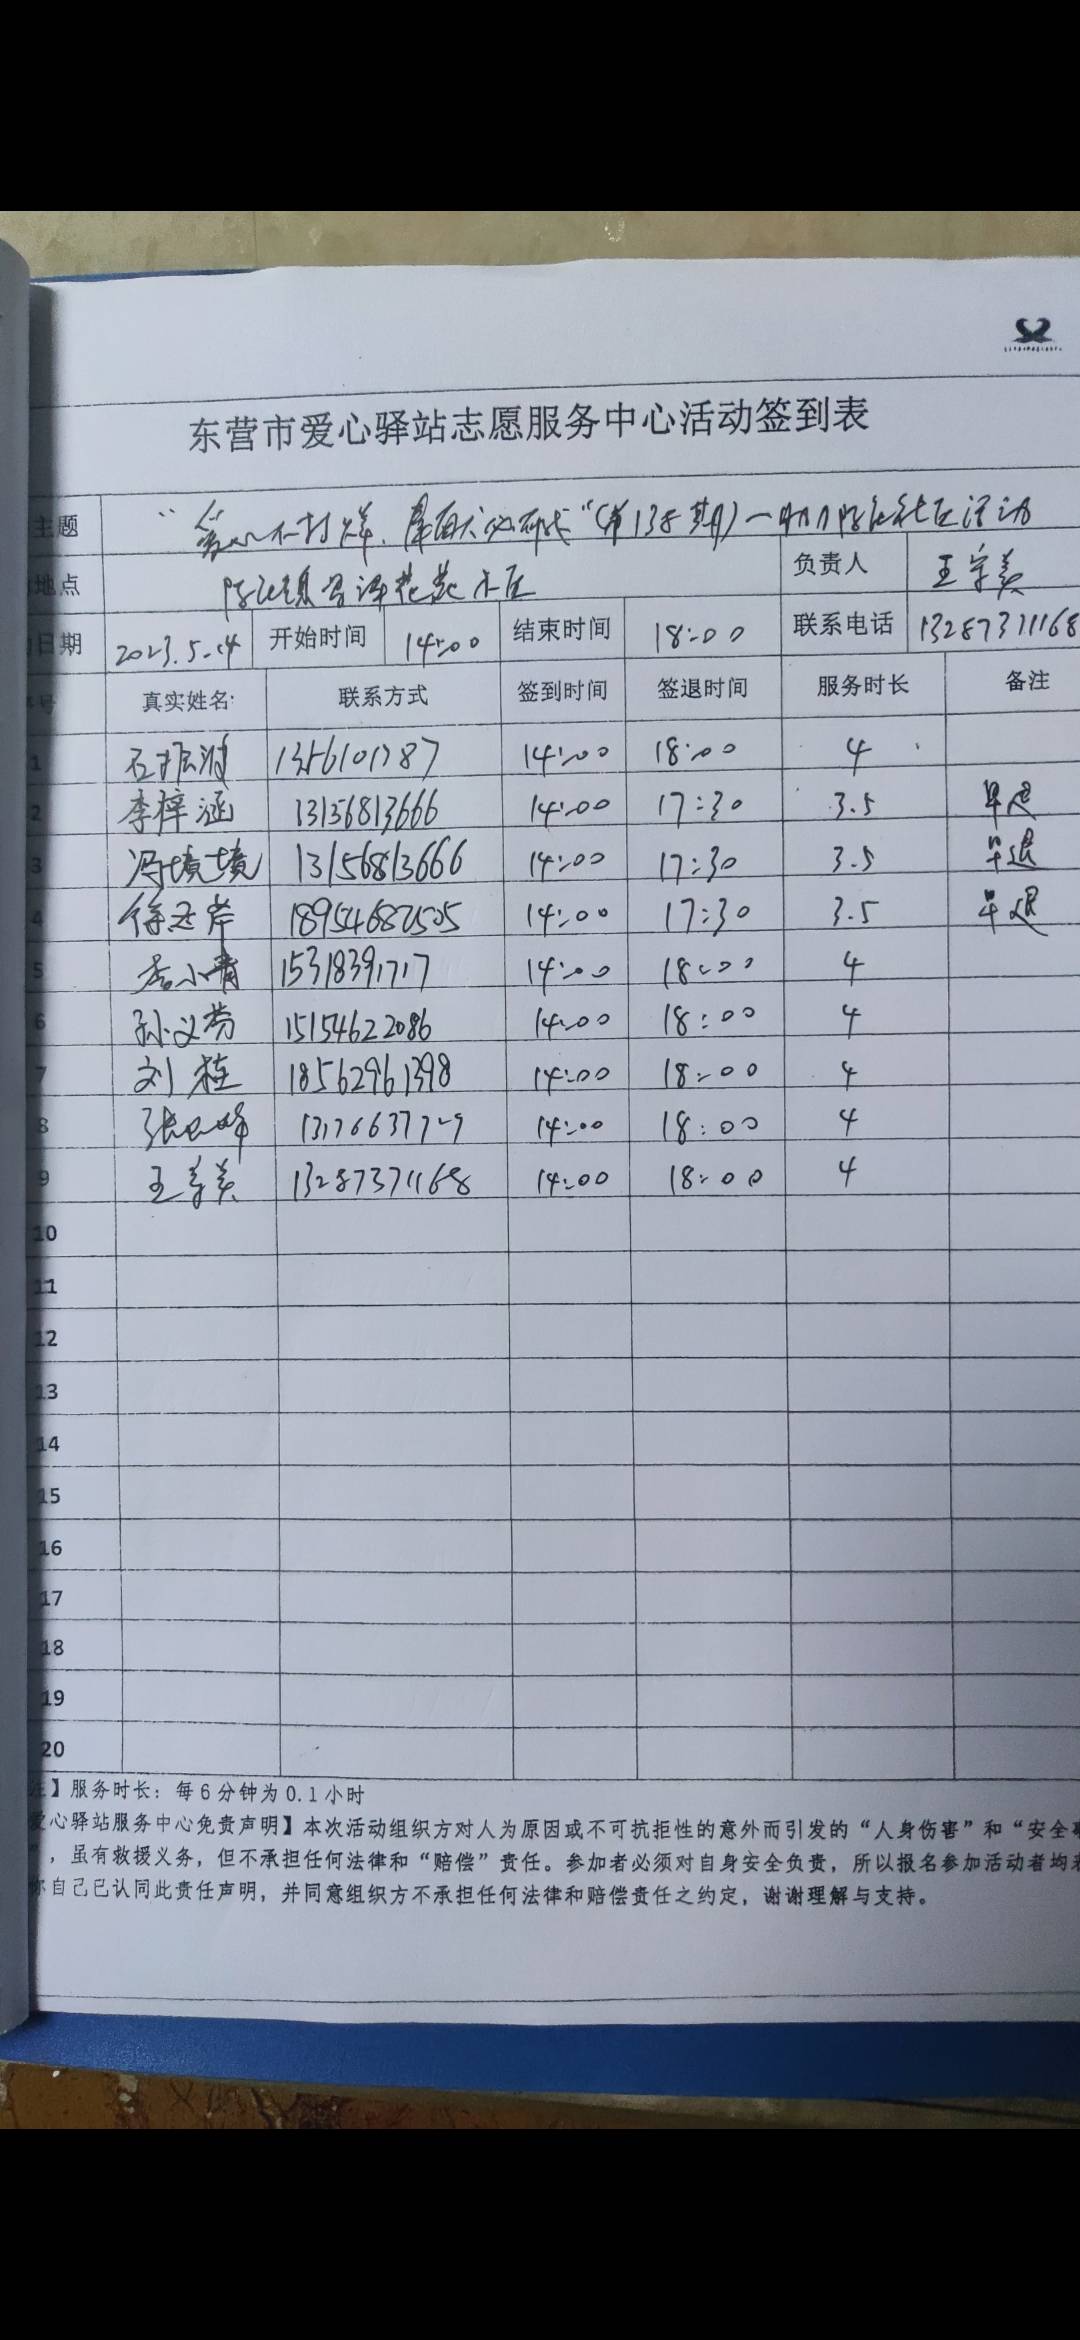 东营市爱心驿站志愿服务中心活动签到表
主题 "爱心不打烊, "(第138期)一助力 社区活动
地点 小区 负责人 王学美
日期 2023.5.14 开始时间 14:00 结束时间 18:00 联系电话 13287371168
号 真实姓名: 联系方式 签到时间 签退时间 服务时长 备注
1 石振波 14:00 18:00 4
2 李梓涵 13156813666 14:00 17:30 3.5 早退
3 冯愤愤 13156813666 14:00 17:30 3.5 早退
4 14:00 17:30 3.5 早退
5 李小青 15318391717 14:00 18:00 4
6 孙义芳 15154622086 14:00 18:00 4
7 刘桂 18562961398 14:00 18:00 4
8 14:00 18:00 4
9 王学美 13287371168 14:00 18:00 4
10
11
12
13
14
15
16
17
18
19
20
注】服务时长：每6分钟为0.1小时
爱心驿站服务中心免责声明】本次活动组织方对人为原因或不可抗拒性的意外而引发的“人身伤害”和“安全
”，虽有救援义务，但不承担任何法律和“赔偿”责任。参加者必须对自身安全负责，所以报名参加活动者均
你自己已认同此责任声明，并同意组织方不承担任何法律和赔偿责任之约定，谢谢理解与支持。